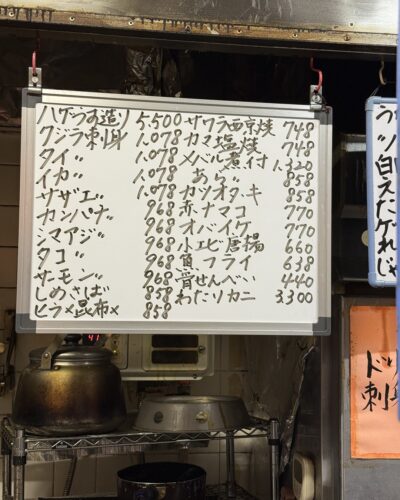 ハゲヅラの造り 5,500
クジラ刺身 1,078
タイ〃 1,078
イカ〃 1,078
サザエ〃 1,078
カンパチ〃 968
シマアジ〃 968
タコ〃 968
サーモン〃 968
しめさば 858
ヒラメ昆布〆 858
サワラ西京焼 748
カマ塩焼 748
メバル煮付 1,320
〃あら〃 858
カツオタキ 858
赤ナマコ 770
オバイケ 770
小エビ唐揚 660
〃フライ 638
骨せんべい 440
わたりカニ 3,300
白えび
刺身